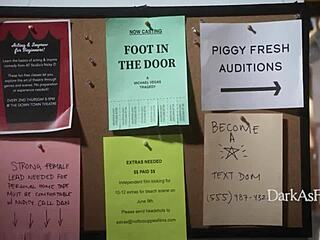 Acting & Improv
for Beginners!
Learn the basics of acting & improv
comedy from AT Studio's Nicky D
These fun free classes let you
explore the art of theatre through
games and scenes. No preparation
or experience needed!
EVERY 2ND THURSDAY 8 PM
@ THE DOWN TOWN THEATRE
NOW CASTING
FOOT IN
THE DOOR
A
MICHAEL VEGAS
TRAGEDY
PIGGY FRESH
AUDITIONS
STRONG FEMALE
LEAD NEEDED FOR
PERSONAL HOME TAPE
MUST BE COMFORTABLE
W/ NUDITY. CALL DAN
EXTRAS NEEDED
$$ PAID $$
Independent film looking for
10-12 extras for beach scene on
June 9th.
Please send headshots to
BECOME
A
TEXT DOM
(555) 987-432
DarkAsF